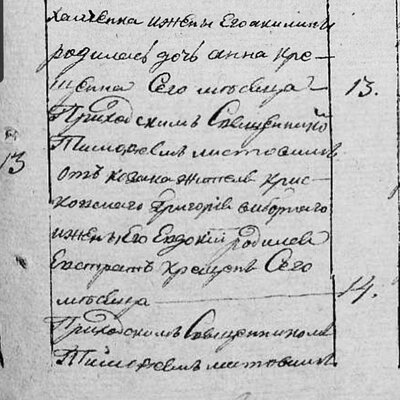 халченка и жены его акилины
родилась дочь анна кре-
щенна Сего месяца 13.
Приходскимъ Священникомъ
Тимофеемъ
13 отъ козака жителя крис-
Григорія выборного
и жены его Евдокіи родился
Евстратъ крещенъ Сего
месяца 14.
Приходскимъ Священникомъ
Тимофеемъ